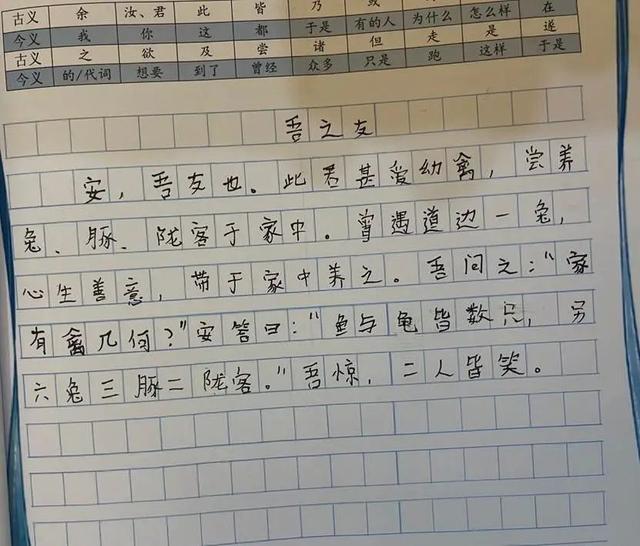 古义 余 汝、君 此 皆 乃 或 在
今义 我 你 这 都 于是 有的人 为什么 怎么样 在
古义 之 欲 及 尝 诸 但 走 是 遂
今义 的/代词 想要 到了 曾经 众多 只是 跑 这样 于是
吾之友
安，吾友也。此君甚爱幼禽，尝养
兔、豚、陇客于家中。曾遇道边一兔，
心生善意，带于家中养之。吾问之："家
有禽几何？"安答曰："鱼与龟皆数只，另
六兔三豚二陇客。"吾惊，二人皆笑。